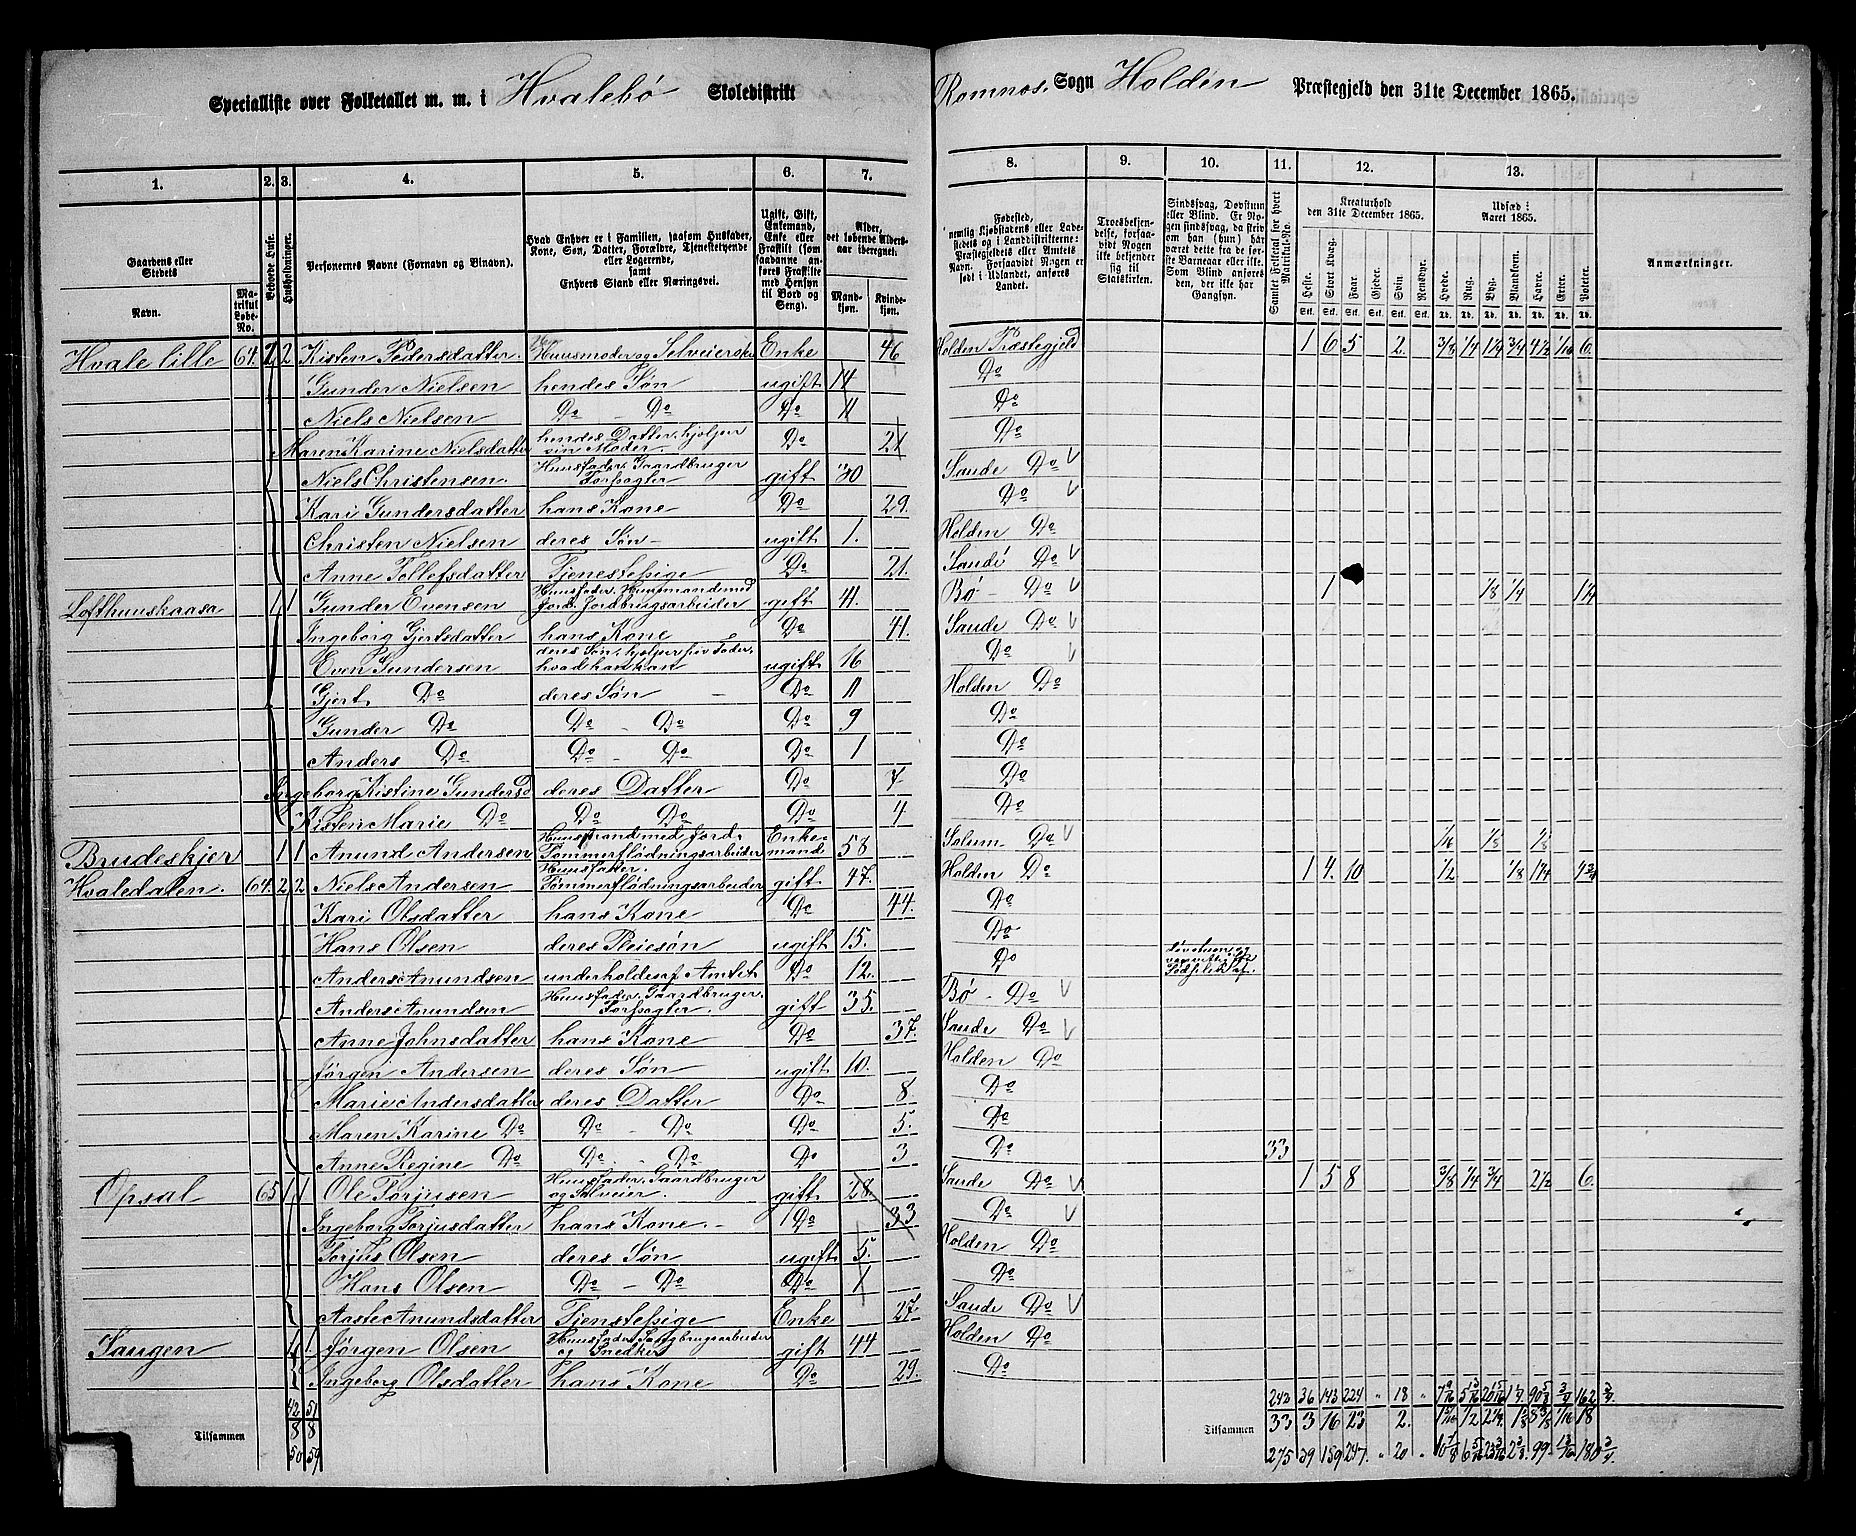 Specialliste over Folketallet m. m. i Hvalebö Skoledistrikt Romnos Sogn Holden Præstegjeld den 31te December 1865.
1. 2. 3. 4. 5. 6. 7. 8. 9. 10. 11. 12. 13.
Gaardens eller Stedets Navn. Matrikul Løbe-No. Beboede Huse. Husholdninger. Personernes Navne (Fornavn og Binavn).
Hvad Enhver er i Familien, saasom Husfader, Kone, Søn, Datter, Forældre, Tjenestetyende eller Logerende, samt Enhvers Stand eller Næringsvei.
Ugift, Gift, Enkemand, Enke eller Fraskilt (som saadanne anføres Fraskilte med Hensyn til Bord og Seng).
Alder, det løbende Aldersaar iberegnet. Mandkjøn. Kvindekjøn.
Fødested, nemlig Kjøbstadens eller Ladestedets og i Landdistrikterne: Præstegjeldets eller Amtets Navn. Forsaavidt Nogen er født i Udlandet, anføres Landet.
Troesbekjendelse, forsaavidt Nogen ikke bekjender sig til Statskirken.
Sindssvag, Døvstum eller Blind. Er Nogen sindssvag, da skriv om han (hun) har været dette fra de første Barneaar eller ikke. Som Blind anføres den, der ikke har Gangsyn.
Samlet Folketal for hvert Matrikul-No.
Kreaturhold den 31te December 1865. Heste. Stort Kvæg. Faar. Gjeder. Svin. Rensdyr.
Udsæd i Aaret 1865. Hvede. Rug. Byg. Blandkorn. Havre. Erter. Poteter.
Anmærkninger.
Hvale lille 64. 1 2 Kisten Pedersdatter. Huusmoder og Selveierske Enke 46 Holden Præstegjeld 1 6 5 2. 3/8 1/4 1 1/4 3/4 4 1/2 1/16 6.
Gunder Nielsen hendes Søn ugift 14 Do
Niels Nielsen Do - Do Do 11 Do
Maren Karine Nielsdatter hendes Datter, hjelper sin Moder. Do 21 Do
Niels Christensen. Huusfader, Gaardbruger Forpagter gift 30 Saude Do
Kari Gundersdatter hans Kone Do 29. Do
Christen Nielsen deres Søn - ugift 1. Holden Do
Anne Tollefsdatter Tjenestepige Do 21. Saude Do
Lofthuuskaasa 1 1 Gunder Evensen Huusfader, Huusmand med Jord. Jordbrugsarbeider gift 41. Bø - Do 1 1/8 1/4 1 1/4
Ingeborg Gjertsdatter hans Kone Do 41. Saude Do
Even Gundersen deres Søn, hjelper sin Fader, hvad han kan ugift 16 Do
Gjert Do deres Søn - Do 11 Holden Do
Gunder Do Do - Do Do 9 Do
Anders Do Do - Do Do 1 Do
Ingeborg Kistine Gundersd deres Datter Do 7 Do
Kisten Marie Do Do Do Do 4 Do
Brudeskjer 1 1 Anund Andersen Huusmand med Jord. Tømmerflødningsarbeider Enkemand 58 Solum Do
Hvaledalen. 64. 2 2 Niels Andersen Huusfader. Tømmerflødningsarbeider gift 47. Holden Do 1 4. 10 1/2 1/8 1 1/4
Kari Olsdatter hans Kone Do 44. Do
Hans Olsen deres Pleiesøn ugift 15. Do
Anders Anundsen underholdes af Amtet Do 12. Do
Anders Anundsen Huusfader, Gaardbruger. Forpagter. gift 35. Bø - Do
Anne Johnsdatter hans Kone Do 37. Saude Do
Jørgen Andersen deres Søn ugift 10. Holden Do
Marie Andersdatter deres Datter Do 8 Do
Maren Karine Do Do - Do Do 5. Do
Anne Regine Do Do - Do Do 3 Do 33
Opsal 65 1 1 Ole Torjusen Huusfader, Gaardbruger og Selveier. gift 28 Saude Do 1 5 8 3/8 1/4 3/4 2 1/2 6.
Ingeborg Torjusdatter hans Kone. - Do 33 Do
Torjus Olsen deres Søn ugift 5. Holden Do
Hans Olsen Do - Do Do 1 Do
Aaste Anundsdatter Tjenstepige Enke 27 Saude Do
Saugen 1 1. Jørgen Olsen Huusfader, Saugbrugsarbeider og Snedker gift 44 Holden Do
Ingeborg Olsdatter hans Kone Do 29. Do
42 51 242 36 143 224 " 18 "
Tilsammen 8 8 Tilsammen 33 3 16 23 2.
50 59 275 39 159 247. " 20 "